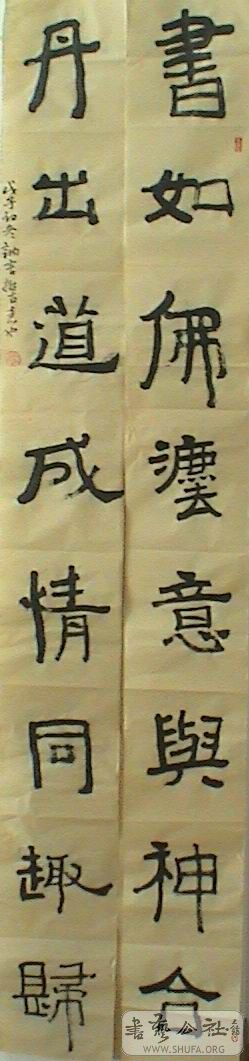 書如佛灋意與神合
丹出道成情同趣歸
戊子初冬訥言
書藝公社
WWW.SHUFA.ORG